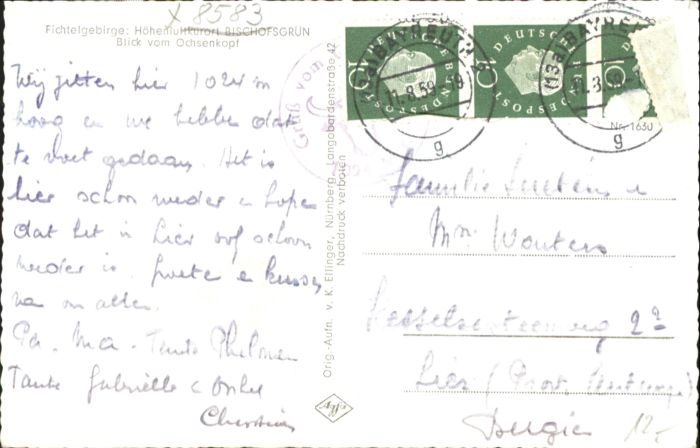 X 8583
Fichtelgebirge: Höhenluftkurort BISCHOFSGRÜN
Blick vom Ochsenkopf
Wij zitten hier 1024 m
hoog en we hebben dat
te voet gedaan. Het is
hier schoon weder en hopen
dat het in Lier ook schoon
weder is. Groeten en kussen
van ons allen.
Pa. Ma. Tante Philomen
Tante Gabrielle
Christiane
Orig.-Aufn. v. K. Ellinger, Nürnberg, Langobardenstraße 42
Nachdruck verboten
Agfa
Gruß vom
DEUTSCHE BUNDESPOST
10
DEUTSCHE BUNDESPOST
10
10
(13a) BAYREUTH
11.8.59-19
g
(13a) BAYREUTH
11.8.59
g
Nr. 1630
Familie
Mr. Wouters
Kesselsesteenweg 2a
Lier (Prov. Antwerpen)
Belgien
12.-